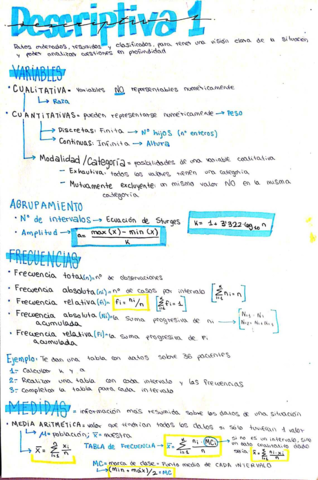 Descriptiva 1
Datos ordenados, resumidos y clasificados, para tener una visión clara de la situación
y poder analizar cuestiones en profundidad
VARIABLES
• CUALITATIVA = variables NO representables numéricamente
↳ Raza
• CUANTITATIVAS = pueden representarse numéricamente → Peso
↳ Discretas: Finita → Nº hijos (nº enteros)
Continuas: Infinita → Altura
↳ Modalidad / Categoría = posibilidades de una variable cualitativa
– Exhaustiva: todos los valores tienen una categoría
– Mutuamente excluyente: un mismo valor NO en la misma
categoría
AGRUPAMIENTO
• Nº de intervalos → Ecuación de Sturges → K = 1 + 3'322 log₁₀ n
• Amplitud → a = max (x) - min (x) / K
FRECUENCIAS
• Frecuencia total (n) = nº de observaciones
• Frecuencia absoluta (ni) = nº de casos por intervalo [Σ ni = n]
• Frecuencia relativa (fi) = fi = ni/n [Σ fi = 1]
• Frecuencia absoluta (Ni) = la suma progresiva de ni
acumulada
• Frecuencia relativa (Fi) = la suma progresiva de fi
acumulada
Ejemplo: Te dan una tabla con datos sobre 30 pacientes
1- Calcular K y a
2- Realizar una tabla con cada intervalo y las frecuencias
3- Completar la tabla para cada intervalo
MEDIDAS = información más resumida sobre los datos de una situación
• MEDIA ARITMÉTICA = valor que tendrían todos los datos si solo tuvieran 1 valor
↳ μ = población; x̄ = muestra
x̄ = Σ xi / n
TABLA DE FRECUENCIA → x̄ = Σ ni · (MC) / n
si no es un intervalo, sino
un dato cualitativo dado
sería x̄ = Σ ni · xi / n
MC = marca de clase = Punto medio de CADA INTERVALO
↳ (min + máx) / 2 = MC